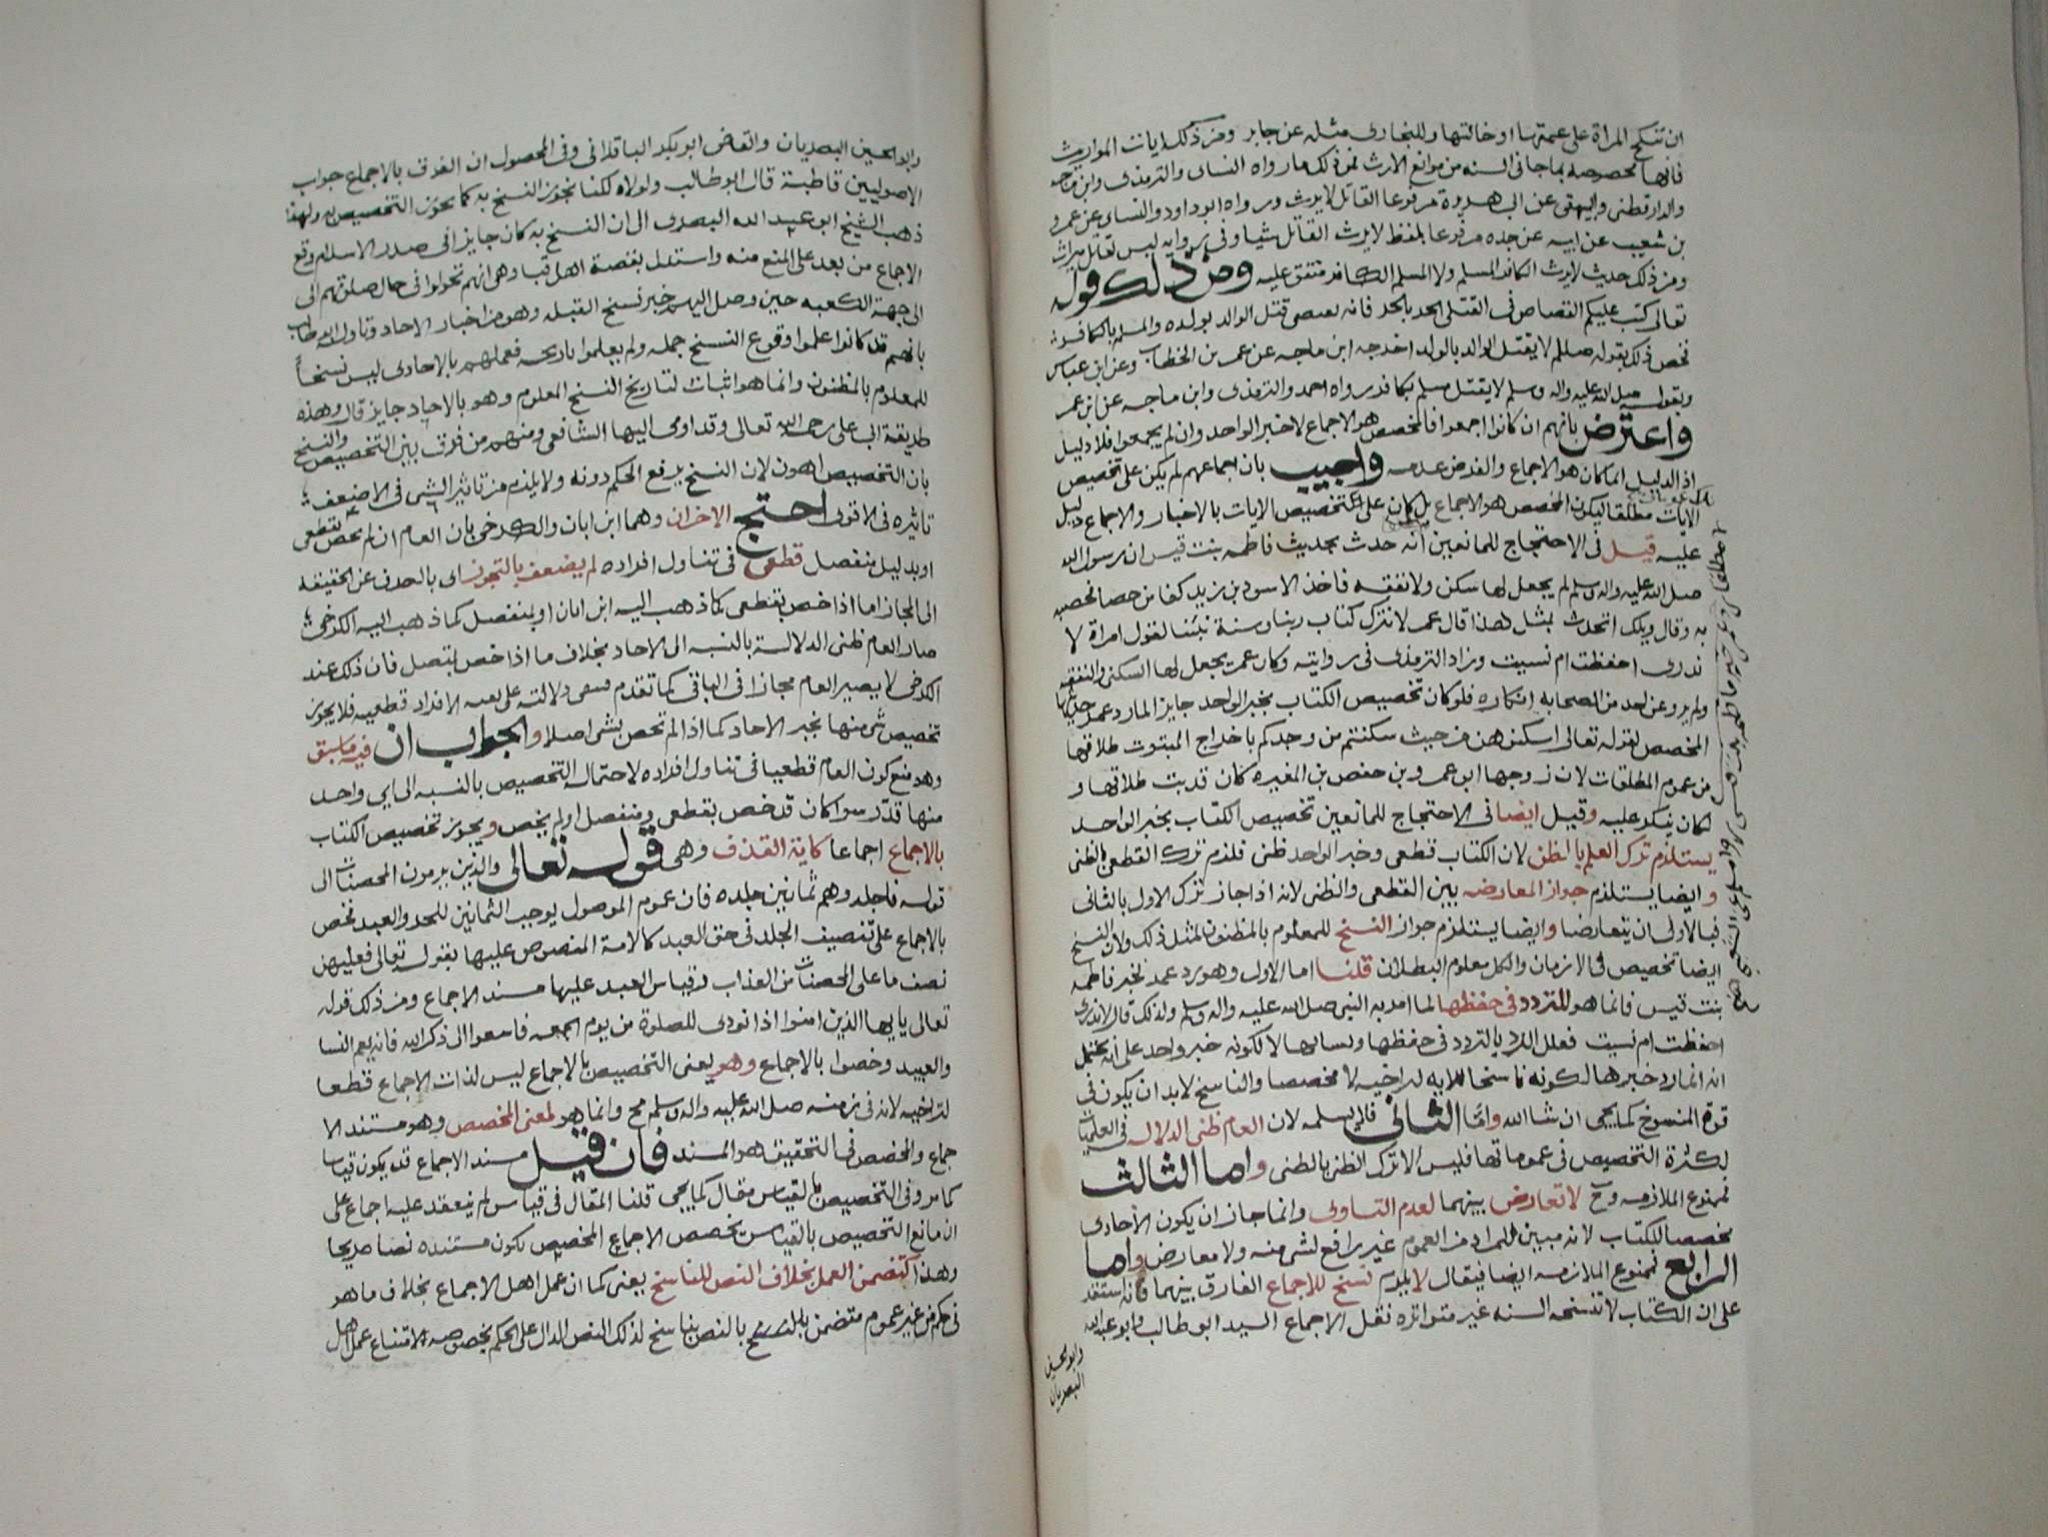 ان تنكح المراة على عمتها او خالتها وللبخارى مثله عن جابر ومن ذلك ايات المواريث
فانها مخصوصه بما جا فى السنه من موانع الارث فمن ذلك ما رواه النساى والترمذى وابن ماجه
والدارقطنى والبيهقى عن ابى هريرة مرفوعا القاتل لا يرث ورواه ابو داود والنساى عن عمرو
بن شعيب عن ابيه عن جده مرفوعا بلفظ لا يرث القاتل شيا وفى روايه ليس لقاتل ميراث
ومن ذلك حديث لا يرث الكافر المسلم ولا المسلم الكافر متفق عليه ومن ذلك قوله
تعالى كتب عليكم القصاص فى القتلى الحر بالحر فانه يقتضى قتل الوالد بولده والمسلم بالكافر
فخص ذلك بقوله صللم لا يقتل الوالد بالولد اخرجه ابن ماجه عن عمر بن الخطاب وعن ابن عباس
وبقوله صلى الله عليه واله وسلم لا يقتل مسلم بكافر رواه احمد والترمذى وابن ماجه عن ابن عمر
واعترض بانهم ان كانوا اجمعوا فالمخصص هو الاجماع لا خبر الواحد وان لم يجمعوا فلا دليل
اذ الدليل انما كان هو الاجماع والفرض عدمه واجيب بان اجماعهم لم يكن على تخصيص
الايات مطلقا ليكون المخصص هو الاجماع بل كان على تخصيص الايات بالاخبار والاجماع دليل
عليه قيل فى الاحتجاج للمانعين انه حدث بحديث فاطمه بنت قيس ان رسول الله
صلى الله عليه واله وسلم لم يجعل لها سكنى ولا نفقه فاخذ الاسود بن يزيد كفا من حصا فحصبه
به وقال ويلك اتحدث بمثل هذا قال عمر لا نترك كتاب ربنا وسنة نبينا لقول امراة لا
ندرى احفظت ام نسيت وزاد الترمذى فى روايته وكان عمر يجعل لها السكنى والنفقه
ولم يرو عن احد من الصحابه انكاره فلو كان تخصيص الكتاب بخبر الواحد جايز المارد عمر حديثها
المخصص لقوله تعالى اسكنوهن من حيث سكنتم من وجدكم باخراج المبتوت طلاقها
من عموم المطلقات لان زوجها ابو عمرو بن حفص بن المغيره كان قد بت طلاقها و
لكان ينكر عليه وقيل ايضا فى الاحتجاج للمانعين تخصيص الكتاب بخبر الواحد
يستلزم ترك العلم بالظن لان الكتاب قطعى وخبر الواحد ظنى فلزم ترك القطعى بالظنى
وايضا يستلزم جواز المعارضه بين القطعى والظنى لانه اذا جاز ترك الاول بالثانى
فبالاولى ان يتعارضا وايضا يستلزم جواز النسخ للمعلوم بالمظنون لمثل ذلك ولان النسخ
ايضا تخصيص فى الازمان والكل معلوم البطلان قلنا اما الاول وهو رد عمر لخبر فاطمه
بنت قيس فانما هو للتردد فى حفظها لما امر به النبى صلى الله عليه واله وسلم ولذلك قال لا ندرى
احفظت ام نسيت فعلل الرد بالتردد فى حفظها ونسيانها لا لكونه خبر واحد على انه يحتمل
انه انما رد خبرها لكونه ناسخا للايه لتراخيه لا مخصصا والناسخ لا بد ان يكون فى
قوة المنسوخ كما يجى ان شا الله واما الثانى فلا نسلمه لان العام ظنى الدلاله فى العمليات
لكثرة التخصيص فى عموماتها فليس الا ترك الظن بالظنى واما الثالث
فممنوع الملازمه وح لا تعارض بينهما لعدم التساوى وانما جاز ان يكون الاحادى
مخصصا للكتاب لانه مبين للمراد من العموم غير رافع لشى منه ولا معارض واما
الرابع فممنوع الملازمه ايضا فيقال لا يلزم نسخ للاجماع الفارق بينهما فانه استقر
على ان الكتاب لا تنسخه السنه غير متواتره نقل الاجماع السيد ابو طالب وابو عبد الله
وابو الحسين
البصريان
وابو الحسين البصريان والقاضى ابو بكر الباقلانى وفى المحصول ان الفرق بالاجماع جواب
الاصوليين قاطبة قال ابو طالب ولولاه لكنا نجوز النسخ به كما نجوز التخصيص به ولهذا
ذهب الشيخ ابو عبد الله البصرى الى ان النسخ به كان جايزا فى صدر الاسلام وقع
الاجماع من بعد على المنع منه واستدل بقصة اهل قبا وهى انهم تحولوا فى حال صلوتهم الى
الى جهة الكعبه حين وصل اليهم خبر نسخ القبله وهو من اخبار الاحاد وتاوله ابو طالب
بانهم قد كانوا علموا وقوع النسخ جمله ولم يعلموا تاريخه فعملهم بالاحادى ليس نسخا
للمعلوم بالمظنون وانما هو اثبات لتاريخ النسخ المعلوم وهو بالاحاد جايز قال وهذه
طريقة ابى على رحمه الله تعالى وقد اومى اليها الشافعى ومنهم من فرق بين التخصيص والنسخ
بان التخصيص اهون لان النسخ يرفع الحكم دونه ولا يلزم من تاثير الشى فى الاضعف
تاثيره فى الاقوى احتج الاخران وهما ابن ابان والكرخى بان العام ان لم يخص بقطعى
او بدليل منفصل قطعى فى تناول افراده لم يضعف بالتجوز اى بالصرف عن الحقيقه
الى المجاز اما اذا خص بقطعى كما ذهب اليه ابن ابان او بمنفصل كما ذهب اليه الكرخى
صار العام ظنى الدلالة بالنسبه الى الاحاد بخلاف ما اذا خص بمتصل فان ذلك عند
الكرخى لا يصير العام مجازا فى الباقى كما تقدم فتبقى دلالته على بقيه الافراد قطعيه فلا يجوز
تخصيص شى منها بخبر الاحاد كما اذا لم تخص بشى اصلا والجواب ان فيه ما سبق
وهو منع كون العام قطعيا فى تناول افراده لاحتمال التخصيص بالنسبه الى اى واحد
منها قدر سوا كان قد خص بقطعى ومنفصل او لم يخص ويجوز تخصيص الكتاب
بالاجماع اجماعا كاية القذف وهى قوله تعالى والذين يرمون المحصنات الى
قوله فاجلدوهم ثمانين جلده فان عموم الموصول يوجب الثمانين للحر والعبد فخص
بالاجماع على تنصيف الجلد فى حق العبد كالامة المنصوص عليها بقوله تعالى فعليهن
نصف ما على المحصنات من العذاب وقياس العبد عليها مستند الاجماع ومن ذلك قوله
تعالى يايها الذين امنوا اذا نودى للصلوة من يوم الجمعه فاسعوا الى ذكر الله فانه يعم النسا
والعبيد وخصوا بالاجماع وهو يعنى التخصيص بالاجماع ليس لذات الاجماع قطعا
لتراخيه لانه فى زمنه صلى الله عليه واله وسلم مح وانما هو لمعنى المخصص وهو مستند الا
جماع والمخصص فى التحقيق هو المستند فان قيل مستند الاجماع قد يكون قياسا
كما مر وفى التخصيص بالقياس مقال كما يجى قلنا المقال فى قياس لم ينعقد عليه اجماع على
ان مانع التخصيص بالقياس يخصص الاجماع المخصص بكون مستنده نصا صريحا
وهذا كتضمن العمل بخلاف النص للناسخ يعنى كما ان عمل اهل الاجماع بخلاف ما هو
فى حكم من غير عموم متضمن للنسخ بالنص بناسخ لذلك النص الدال على الحكم بخصوصه لامتناع عمل اهل